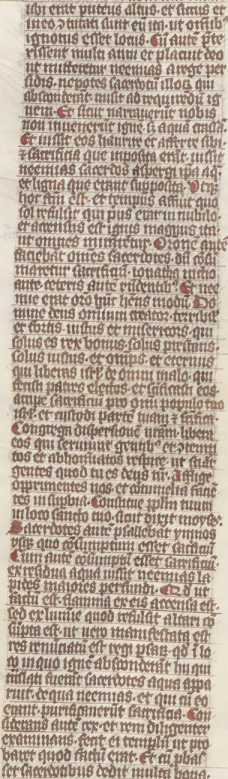 ubi erat puteus altus et siccus et
in eo 9tutati sunt eū ita ut omib'
ignotus esset locus. Cū autē pte
rissent multi anni et placuit deo
ut mitteretur neemias a rege per
sidis. nepotes sacerdotū illoꝝ qui
absconderāt misit ad requirendū ig
nem. Et sicut narraverūt nobis
non invenerūt ignē sꝫ aquā crassā.
Et iussit eos haurire et afferre sibi.
et sacrificia que inposita erāt. iussit
neemias sacerdos aspergi ipa aq̄
et ligna que erant supposita. Utqꝫ
hoc fcm̄ est. et tempus affuit quo
sol refulsit qui prius erat in nubilo.
et accensus est ignis magnus ita
ut omnes mirarētur. Oronē autē
faciebāt omēs sacerdotes. dū cōsū
maretur sacrificiū. ionatha inchoā
ante. ceteris autē rñdentib'. Et nee
mie erat orō hūc hēns modū. Do
mine deus omium creator. terribił
et fortis. iustus et misericors. qui
solus es rex bonus. solus prestans.
solus iustus. et omps. et eternus.
qui liberas isrł de omni malo. qui
fecisti patres electos. et scificasti eos.
accipe sacrificiū pro omi populo tuo
isrł. et custodi partē tuam et scifica.
Congrega dispersionē nrām. libera
eos qui serviunt gentib'. et 9temp
tos et abhominatos respice. ut sciāt
gentes quod tu es deus nr. Afflige
opprimentes nos. et cōtumeliā faciē
tes in supbia. Constitue pplm̄ tuum
in loco sancto tuo. sicut dixit moyses.
Sacerdotes autē psallebāt ymnos
usqꝫ quo cōsumptum esset sacficiū.
Cum autē cōsumptū esset sacrificiū.
ex residua aqua iussit neemias la
pides maiores perfundi. Qd ut
factū est. flamma ex eis accensa est.
sed ex lumine quod refulsit altari cō
sūpta est. ut vero manifestata est
res renuciatū est regi psaꝝ. qd ī lo
co in quo ignē absconderāt hii qui
trāslati fuerāt sacerdotes aqua appa
ruit. de qua neemias. et qui cū eo
erant. purificaverūt sacrificia. Con
siderans autē rex. et rem diligenter
examinans. fecit ei templū ut pro
baret quod factū erat. Et cum probas
set sacerdotibus dedit multa bona